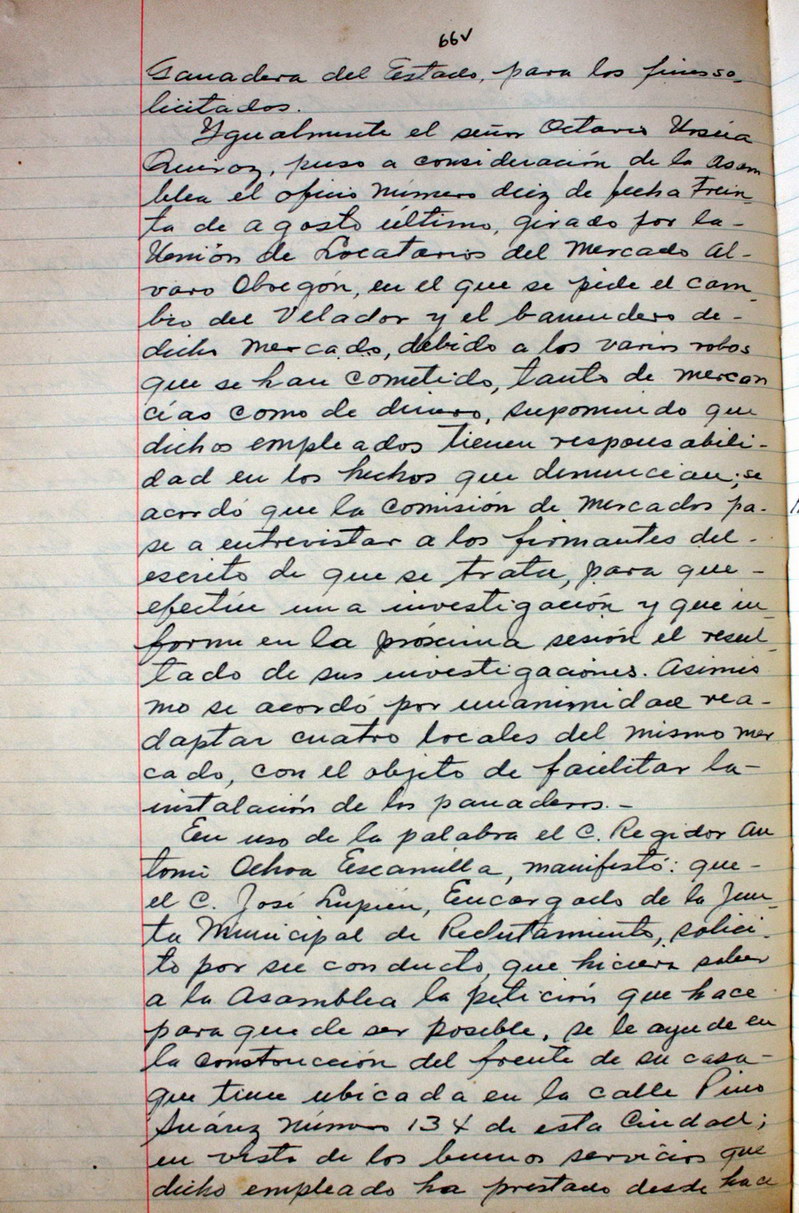 66v
Ganadera del Estado, para los fines so-
licitados.
Ygualmente el señor Octavio Ursúa
Quiroz, puso a consideración de la Asam
blea el oficio número diez de fecha Trein-
ta de agosto último, girado por la-
Unión de Locatarios del Mercado Al-
varo Obregón, en el que se pide el cam-
bio del Velador y el barrendero de-
dicho mercado, debido a los varios robos
que se han cometido, tanto de mercan
cías como de dinero, suponiendo que
dichos empleados tienen responsabili-
dad en los hechos que denuncian; se
acordó que la Comisión de Mercados pa-
se a entrevistar a los firmantes del-
escrito de que se trata, para que-
efectúe una investigación y que in-
forme en la próxima sesión el resul-
tado de sus investigaciones. Asimis
mo se acordó por unanimidad rea-
daptar cuatro locales del mismo mer
cado, con el objeto de facilitar la-
instalación de los panaderos.-
En uso de la palabra el C. Regidor An
tonio Ochoa Escamilla, manifestó: que-
el C. José Lupién, Encargado de la Jun-
ta Municipal de Reclutamiento, solici-
to por su conducto, que hiciera saber
a la Asamblea la petición que hace
para que de ser posible, se le ayude en
la construcción del frente de su casa-
que tiene ubicada en la calle Pino
Suárez número 134 de esta Ciudad;
en vista de los buenos servicios que
dicho empleado ha prestado desde hace